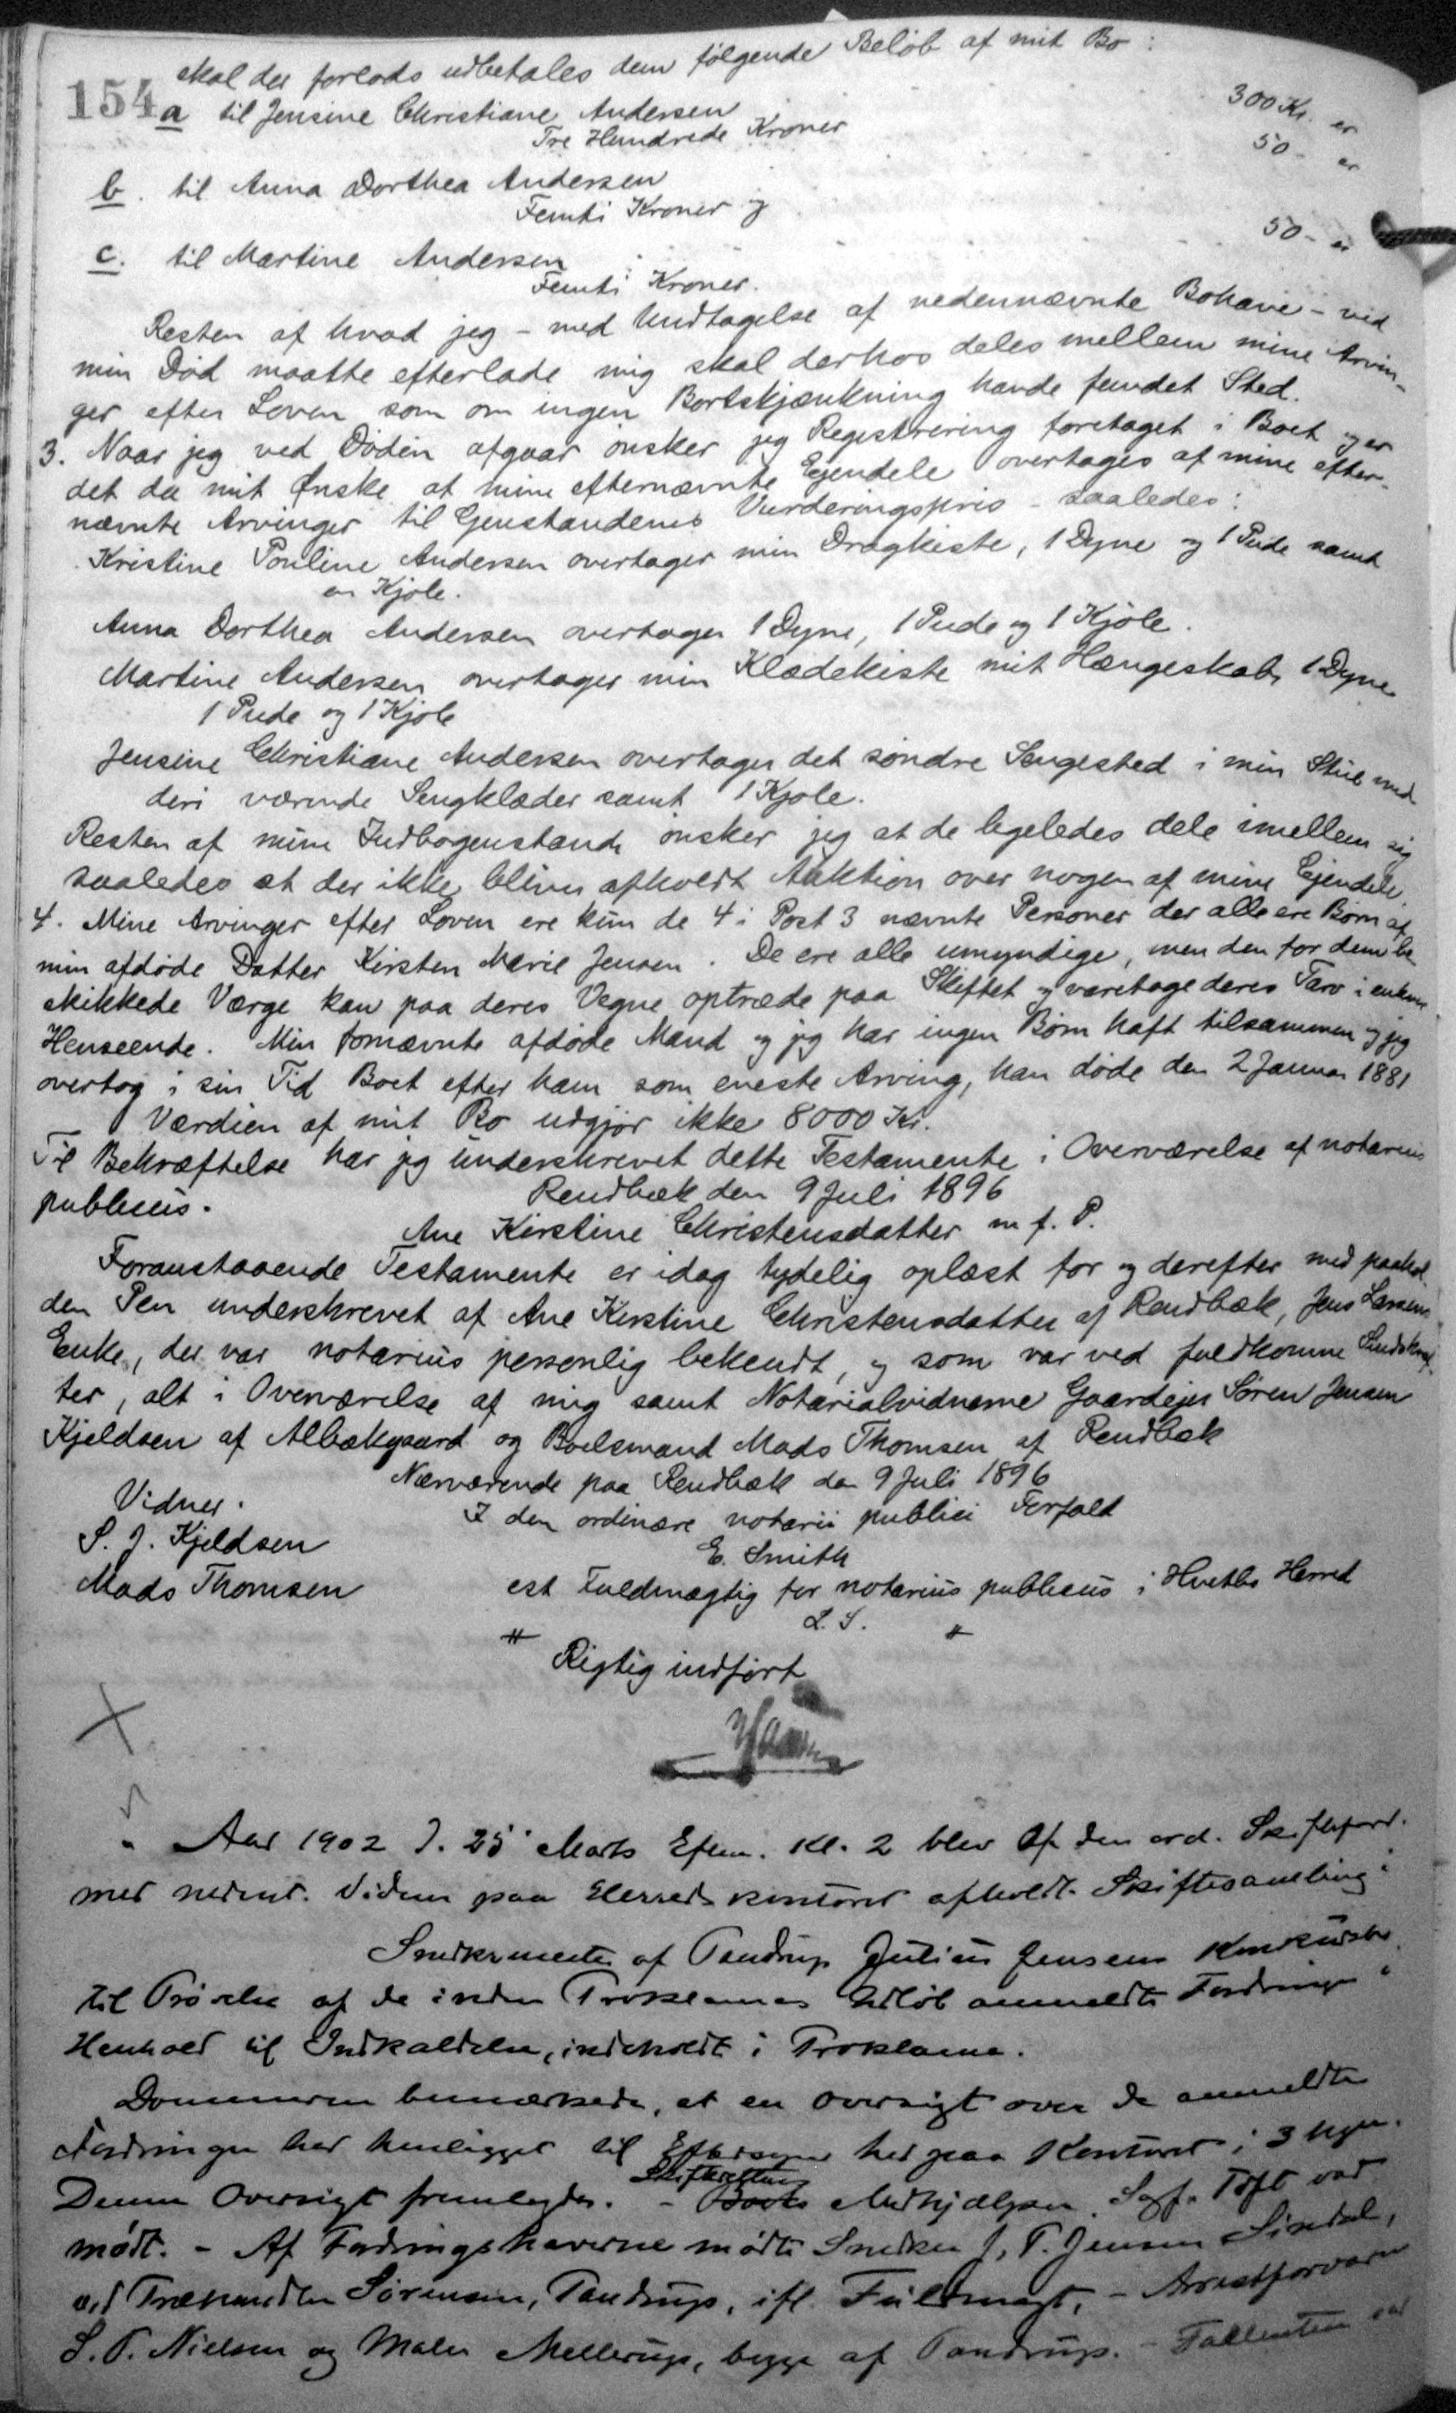 154
skal der forlods udbetales dem følgende Beløb af mit Bo:
a til Jensine Christiane Andersen 300 Kr. er
Tre Hundrede Kroner
b. til Anna Dorthea Andersen 50 - er
Femti Kroner og
c. til Martine Andersen 50 - er
Femti Kroner.
Resten af hvad jeg - med Undtagelse af nedennævnte Bohave - ved
min Død maatte efterlade mig skal derhos deles mellem mine Arvin-
ger efter Loven som om ingen Bortskjænkning havde fundet Sted.
3. Naar jeg ved Døden afgaar ønsker jeg Registrering foretaget i Boet og er
det da mit Ønske at mine efternævnte Ejendele overtages af mine efter-
nævnte Arvinger til Genstandenes Vurderingspris - saaledes:
Kristine Pouline Andersen overtager min Dragkiste, 1 Dyne og 1 Pude samt
en Kjole.
Anna Dorthea Andersen overtager 1 Dyne, 1 Pude og 1 Kjole.
Martine Andersen overtager min Klædekiste mit Hængeskab, 1 Dyne
1 Pude og 1 Kjole
Jensine Christiane Andersen overtager det søndre Sengested i min Stue med
deri værende Sengklæder samt 1 Kjole.
Resten af mine Indbogenstande ønsker jeg at de ligeledes dele imellem sig
saaledes at der ikke bliver afholdt Auktion over nogen af mine Ejendele.
4. Mine Arvinger efter Loven ere kun de 4 i Post 3 nævnte Personer der alle ere Børn af
min afdøde Datter Kirsten Marie Jensen. De ere alle umyndige, men den for dem be-
skikkede Værge kan paa deres Vegne optræde paa Skiftet og varetage deres Tarv i enhver
Henseende. Min fornævnte afdøde Mand og jeg har ingen Børn haft tilsammen og jeg
overtog i sin Tid Boet efter ham som eneste Arving, han døde den 2 Januar 1881
Værdien af mit Bo udgjør ikke 8000 Kr.
Til Bekræftelse har jeg underskrevet dette Testamente i Overværelse af notarius
publicus.
Rendbæk den 9 Juli 1896
Ane Kirstine Christensdatter m. f. P.
Foranstaaende Testamente er idag tydelig oplæst for og derefter med paahol-
den Pen underskrevet af Ane Kirstine Christensdatter af Rendbæk, Jens Larsens
Enke, der var notarius personlig bekendt, og som var ved fuldkomne Sindskræf-
ter, alt i Overværelse af mig samt Notarialvidnerne Gaardejer Søren Jensen
Kjeldsen af Albækgaard og Boelsmand Mads Thomsen af Rendbæk
Nærværende paa Rendbæk den 9 Juli 1896
Vidner.
I den ordinære notarii publici Forfald
S. J. Kjeldsen
E. Smith
Mads Thomsen
cst Fuldmægtig for notarius publicus i Hvetbo Herred
L. S.
Rigtig indført
Aar 1902 d. 25 Marts Efterm. Kl. 2 blev Af den ord. Skifteforv.
med nednvt. Vidner paa Herredskontoret afholdt Skiftesamling i
Snedkermester af Pandrup Julius Jensens Konkursbo
til Prøvelse af de inden Proklamas Udløb anmeldte Fordringer i
Henhold til Indkaldelse, indeholdt i Proklama.
Dommeren bemærkede, at en Oversigt over de anmeldte
Fordringer har henligget til Eftersyn her paa Kontoret i 3 Uger.
Denne Oversigt fremlagdes. - Skifterettens Medhjælper Sagf. Toft var
mødt. - Af Fordringshaverne mødte Snedker J. P. Jensen Sindal,
ved Træhandler Sørensen, Pandrup, ifl. Fuldmagt, - Arrestforvarer
S. P. Nielsen og Maler Mellerup, begge af Pandrup. - Fallenten var